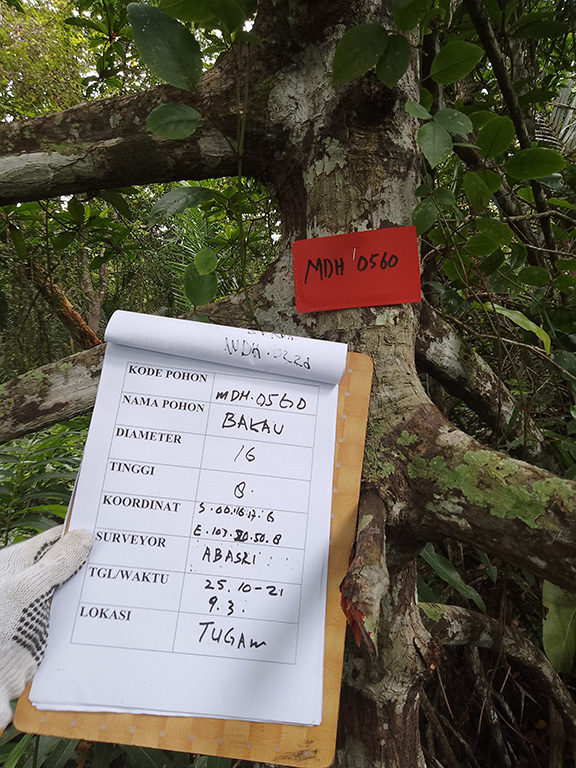 MDH 0560
KODE POHON MDH.0560
NAMA POHON BAKAU
DIAMETER 16
TINGGI 8.
KOORDINAT S.00.16.17.6
E.107.50.50.8
SURVEYOR ABASRI
TGL/WAKTU 25.10-21
9.3.
LOKASI TUGAW